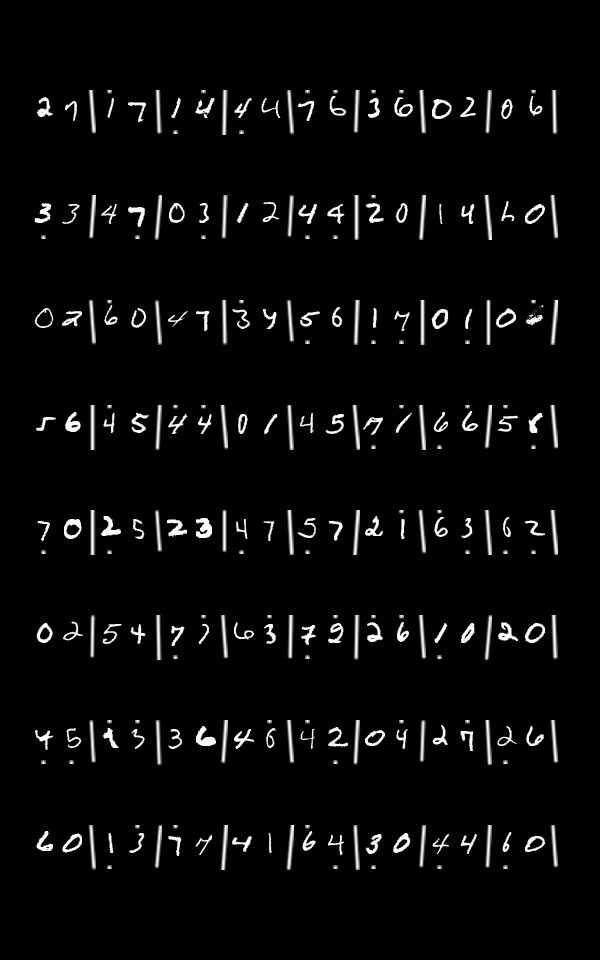 2 7 | 1 7 | 1 4 | 4 4 | 7 6 | 3 6 | 0 2 | 0 6 |
3 3 | 4 7 | 0 3 | 1 2 | 4 4 | 2 0 | 1 4 | 6 0 |
0 2 | 6 0 | 4 7 | 3 4 | 5 6 | 1 7 | 0 1 | 0 |
5 6 | 4 5 | 4 4 | 0 1 | 4 5 | 7 1 | 6 6 | 5 |
7 0 | 2 5 | 2 3 | 4 7 | 5 7 | 2 1 | 6 3 | 6 2 |
0 2 | 5 4 | 7 7 | 6 3 | 7 2 | 2 6 | 1 0 | 2 0 |
4 5 | 1 3 | 3 6 | 4 6 | 4 2 | 0 4 | 2 7 | 2 6 |
6 0 | 1 3 | 7 7 | 4 1 | 6 4 | 3 0 | 4 4 | 6 0 |